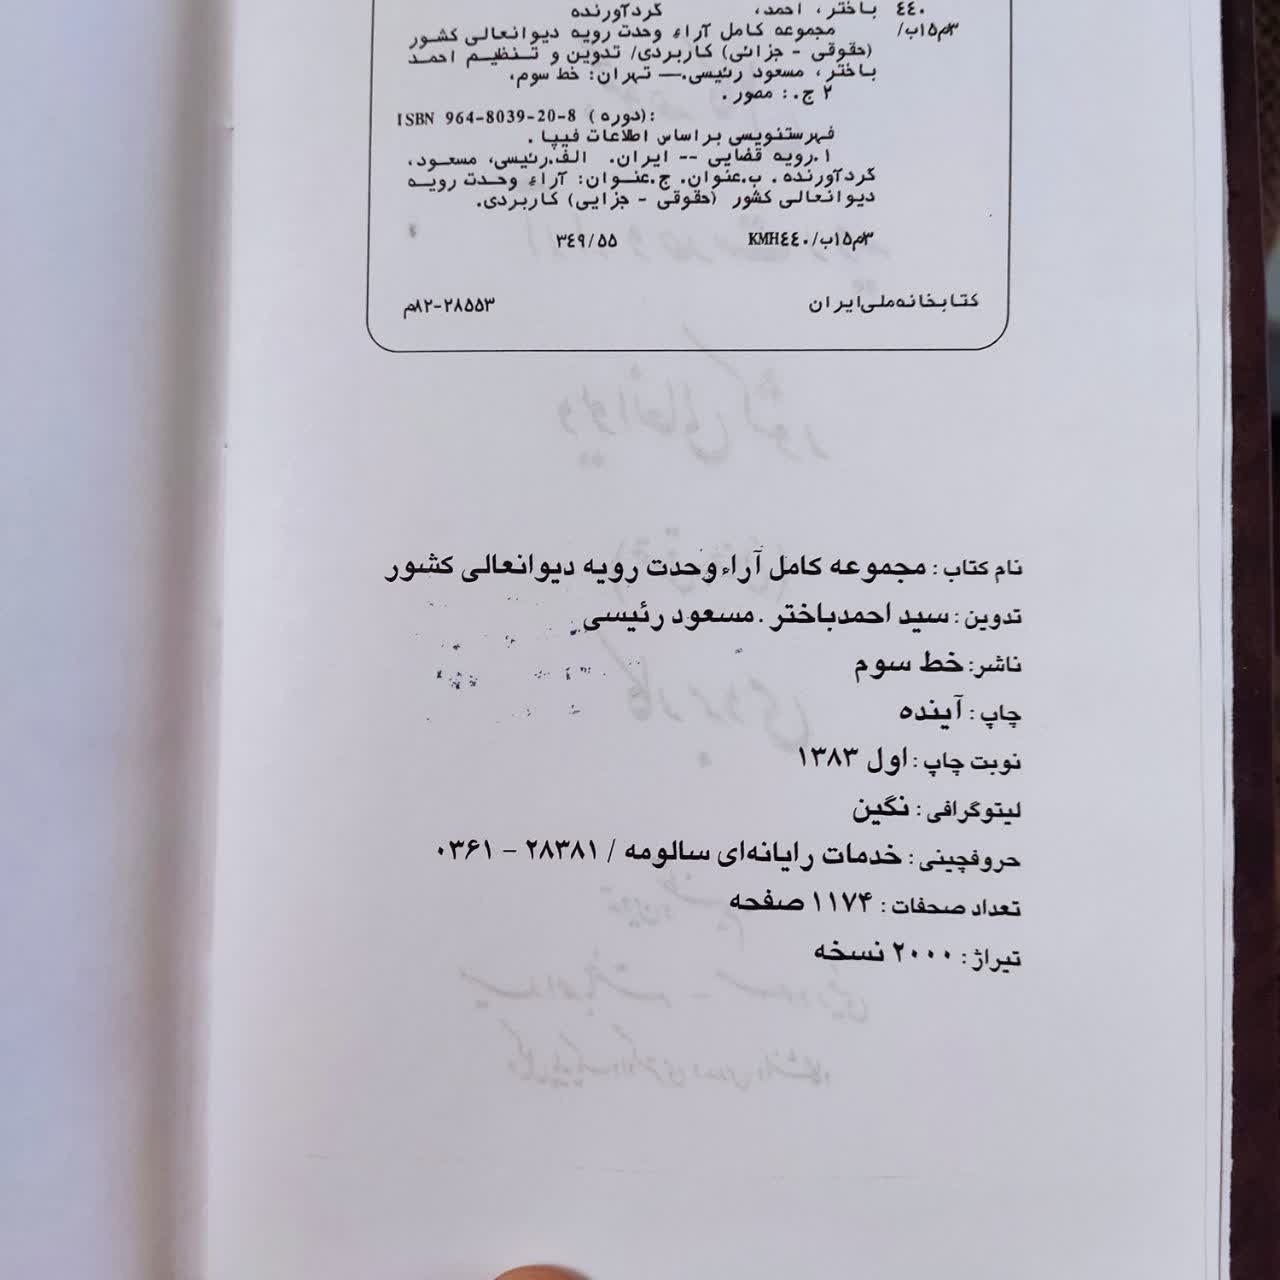 باختر، احمد، گردآورنده ٤٤٠
مجموعه کامل آراء وحدت رویه دیوانعالی کشور ۳م۱۵ب/
(حقوقی - جزائی) کاربردی/ تدوین و تنظیم احمد
باختر، مسعود رئیسی.— تهران: خط سوم،
۲ ج.: مصور.
ISBN 964-8039-20-8 (دوره):
فهرستنویسی براساس اطلاعات فیپا.
۱.رویه قضایی -- ایران. الف.رئیسی، مسعود،
گردآورنده. ب.عنوان. ج.عنوان: آراء وحدت رویه
دیوانعالی کشور (حقوقی - جزایی) کاربردی.
۳۴۹/۵۵ KMH٤٤٠/۳م۱۵ب
کتابخانه ملی ایران ۸۲-۲۸۵۵۳م
نام کتاب : مجموعه کامل آراء وحدت رویه دیوانعالی کشور
تدوین : سید احمدباختر . مسعود رئیسی
ناشر: خط سوم
چاپ : آینده
نوبت چاپ : اول ۱۳۸۳
لیتوگرافی : نگین
حروفچینی : خدمات رایانه‌ای سالومه / ۲۸۳۸۱ – ۰۳۶۱
تعداد صفحات : ۱۱۷۴ صفحه
تیراژ : ۲۰۰۰ نسخه